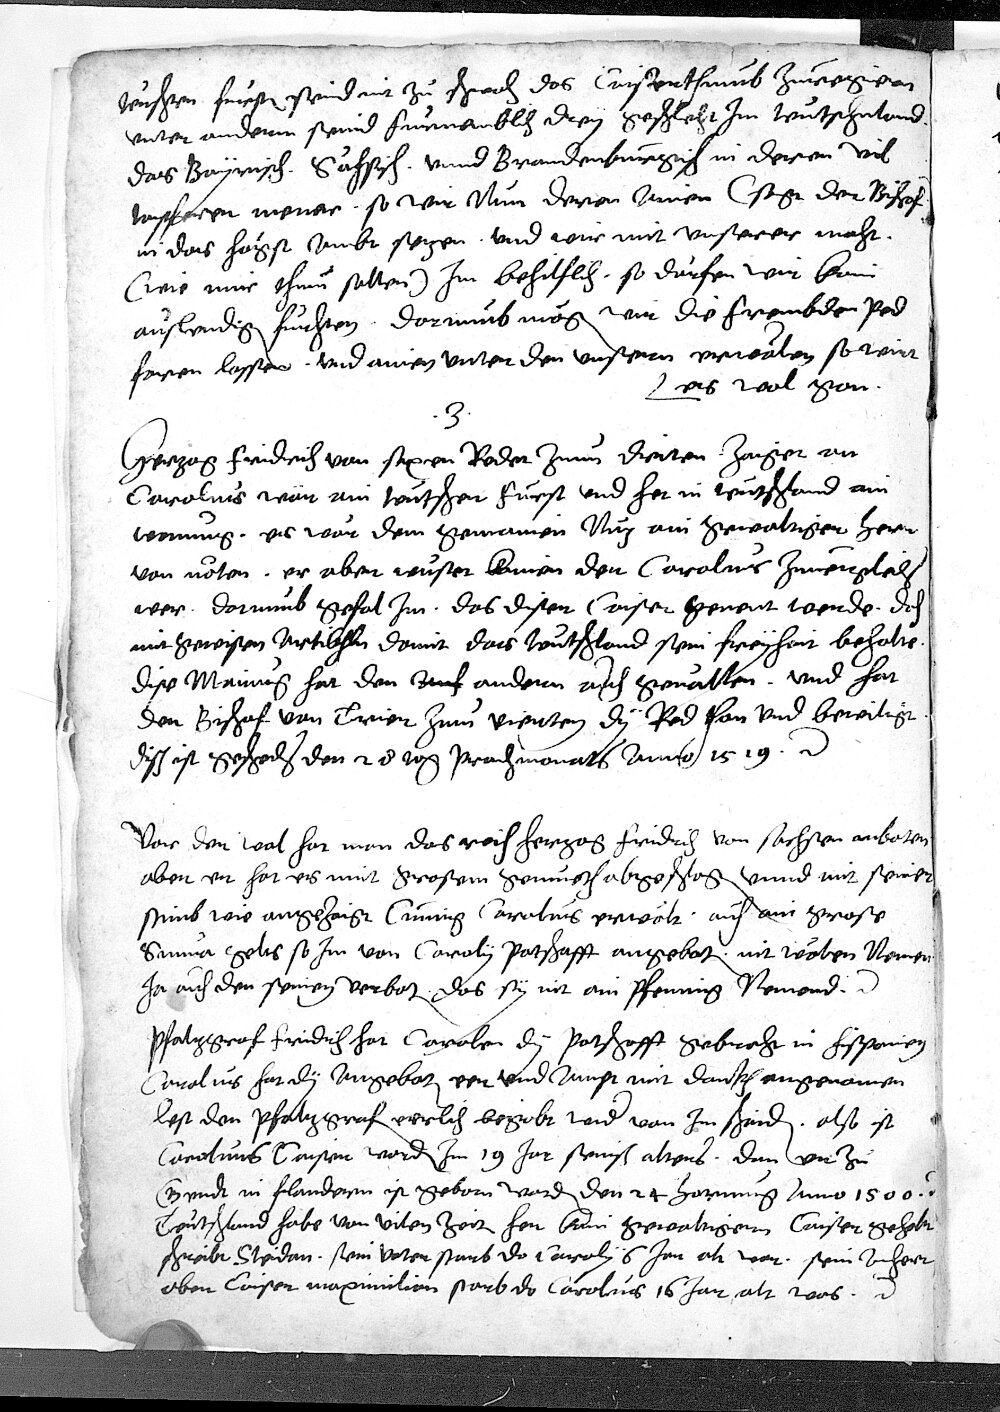 teutschen fursten seind nit zu schwach das Caiserthumb zuuregieren
vnter andern seind furnemblich drey geschlecht Im teutschland.
das Bayrisch. Sächsisch. vnnd Brandenburgisch in denen vil
tapferer mener. so wir Nun deren ainen (sagt der Bischof
in das höchst ambt sezen. vnd wir mit vnserer macht.
(wie wir thun sollen) Im behilflich. so dörfen wir kain
auslendig furchten. dorumb mög wir die frembden Ped
faren lassen. vnd ainen vnter den vnsern erwölen so wirt
es wol gon.
.3.
Herzog Fridrich von saxen Redet zum driten. Zaiget an
Carolus wär ain teutscher Furst vnd het in teutschland ain
wonung. es wär dem gemainen Nuz ain gewaltiger herr
von nöten. er aber wuste kainen der Carolus zuuergleichen
wer. dorumb gefal Im. das diser Caiser genent werde. doch
mit gewisen Artickln damit das teutschland sein freyhait behalte.
dise Mainug hat den andern auch geuallen. vnd hat
der Bischof von Trier zum vierten dy Red thon vnd bewiligt.
diss ist geschechen den 28 tag Prachmonats Anno 1519.
Vor der wal hat man das reich herzog Fridrich von sachsen anboten
aber er hat es mit grosem gemueth abgeschlag vnnd mit seiner
stimb wie angezaigt Cunig Carolus erwölt. auch ain grose
Summa gelts so Im von Carolj Potschafft angebot. nit wöllen Nemen
Ja auch den seinen verbot. das sy nit ain Pfenning Nemend.
Pfalzgraf Fridrich hat Carolen dy Potschafft gebracht in hispanien
Carolus hat dy Angebot eer vnd Ampt mit danck angenomen
lest den Pfalzgraf eerlich begabt wider von Im schaiden. also ist
Carolus Caiser worden Im 19 Jar seines alters. dan er zu
Gendt in flandern ist geborn worden den 24 hornung Anno 1500.
Teutschland habe von vilen zeit her kain gewaltigern Caiser gehebt
schreibt Sleidan. sein vater starb do Carolj 6 Jar alt war. sein Anherr
aber Caiser maximilian starb do Carolus 16 Jar alt was.